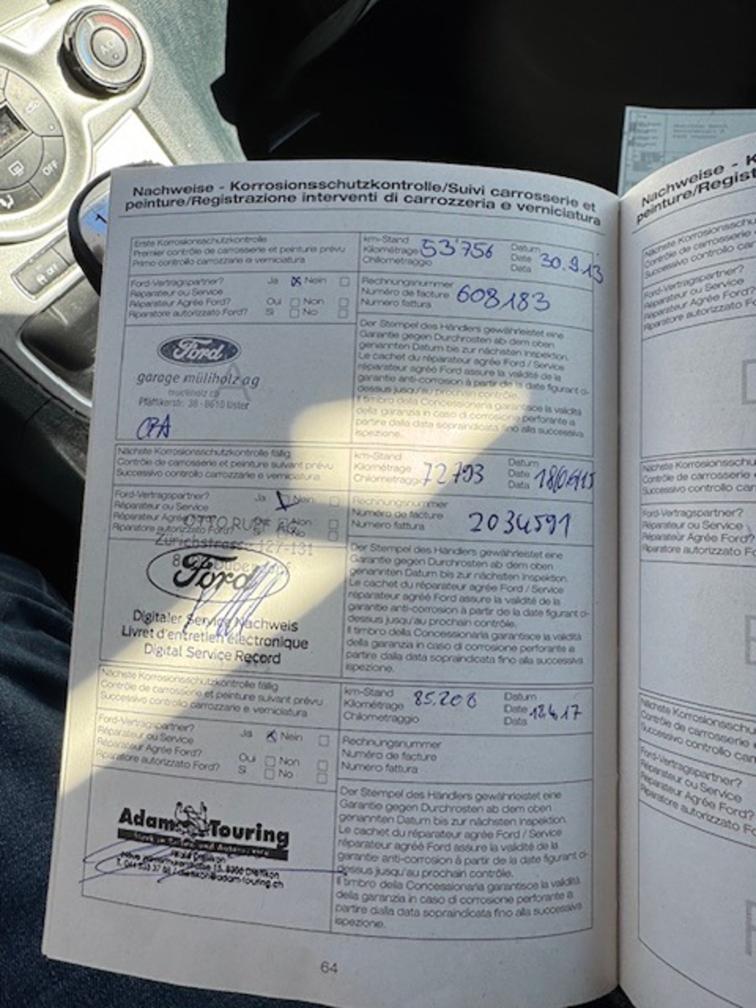 AC
OFF
Nachweise - Korrosionsschutzkontrolle/Suivi carrosserie et
peinture/Registrazione interventi di carrozzeria e verniciatura
Erste Korrosionsschutzkontrolle
Premier contrôle de carrosserie et peinture prévu
Primo controllo carrozzerie e verniciatura
km-Stand
Kilométrage 53'756
Chilometraggio
Datum
Date 30.9.13
Data
Ford-Vertragspartner? Ja Nein
Réparateur ou Service
Réparateur Agrée Ford? Oui Non
Riparatore autorizzato Ford? Si No
Rechnungsnummer
Numéro de facture 608183
Numero fattura
Ford
garage müliholz ag
Pfäffikerstr. 38 - 8610 Uster
Der Stempel des Händlers gewährleistet eine
Garantie gegen Durchrosten ab dem oben
genannten Datum bis zur nächsten Inspektion.
Le cachet du réparateur agrée Ford / Service
réparateur agrée Ford assure la validité de la
garantie anti-corrosion à partir de la date figurant ci-
dessus jusqu'au prochain contrôle.
Il timbro della Concessionaria garantisce la validità
della garanzia in caso di corrosione perforante a
partire dalla data sopraindicata fino alla successiva
ispezione.
Nächste Korrosionsschutzkontrolle fällig
Contrôle de carrosserie et peinture suivant prévu
Successivo controllo carrozzerie e verniciatura
km-Stand
Kilométrage
Chilometraggio
Datum
Date
Data
Ford-Vertragspartner? Ja Nein
Réparateur ou Service
Réparateur Agrée Ford? Non
Riparatore autorizzato Ford? No
Rechnungsnummer
Numéro de facture 2034591
Numero fattura
Zürichstrasse 127-131
Ford
Digitaler Service Nachweis
Livret d'entretien électronique
Digital Service Record
Der Stempel des Händlers gewährleistet eine
Garantie gegen Durchrosten ab dem oben
genannten Datum bis zur nächsten Inspektion.
Le cachet du réparateur agrée Ford / Service
réparateur agrée Ford assure la validité de la
garantie anti-corrosion à partir de la date figurant ci-
dessus jusqu'au prochain contrôle.
Il timbro della Concessionaria garantisce la validità
della garanzia in caso di corrosione perforante a
partire dalla data sopraindicata fino alla successiva
ispezione.
Nächste Korrosionsschutzkontrolle fällig
Contrôle de carrosserie et peinture suivant prévu
Successivo controllo carrozzerie e verniciatura
km-Stand
Kilométrage 85.208
Chilometraggio
Datum
Date
Data
Ford-Vertragspartner? Ja Nein
Réparateur ou Service
Réparateur Agrée Ford? Oui Non
Riparatore autorizzato Ford? Si No
Rechnungsnummer
Numéro de facture
Numero fattura
Adam Touring
Der Stempel des Händlers gewährleistet eine
Garantie gegen Durchrosten ab dem oben
genannten Datum bis zur nächsten Inspektion.
Le cachet du réparateur agrée Ford / Service
réparateur agrée Ford assure la validité de la
garantie anti-corrosion à partir de la date figurant ci-
dessus jusqu'au prochain contrôle.
Il timbro della Concessionaria garantisce la validità
della garanzia in caso di corrosione perforante a
partire dalla data sopraindicata fino alla successiva
ispezione.
64